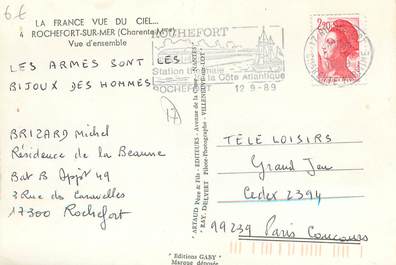 6€
LA FRANCE VUE DU CIEL...
ROCHEFORT-SUR-MER (Charente-Mme)
Vue d'ensemble
LES ARMES SONT LES
BIJOUX DES HOMMES
17
BRIZARD Michel
Résidence de la Beaune
Bat B Appt 49
2 Rue des Caravelles
17300 Rochefort
ROCHEFORT
Station Thermale
de la Côte Atlantique
ROCHEFORT 12 9-89
2,20
* ARTAUD Père & Fils - EDITEURS - Avenue de la Close - NANTES *
* RAY. DELVERT - Pilote-Photographe - VILLENEUVE-sur-LOT *
TELE LOISIRS
Grand Jeu
Cedex 2394
99239 Paris Concours
"Editions GABY"
Marque déposée